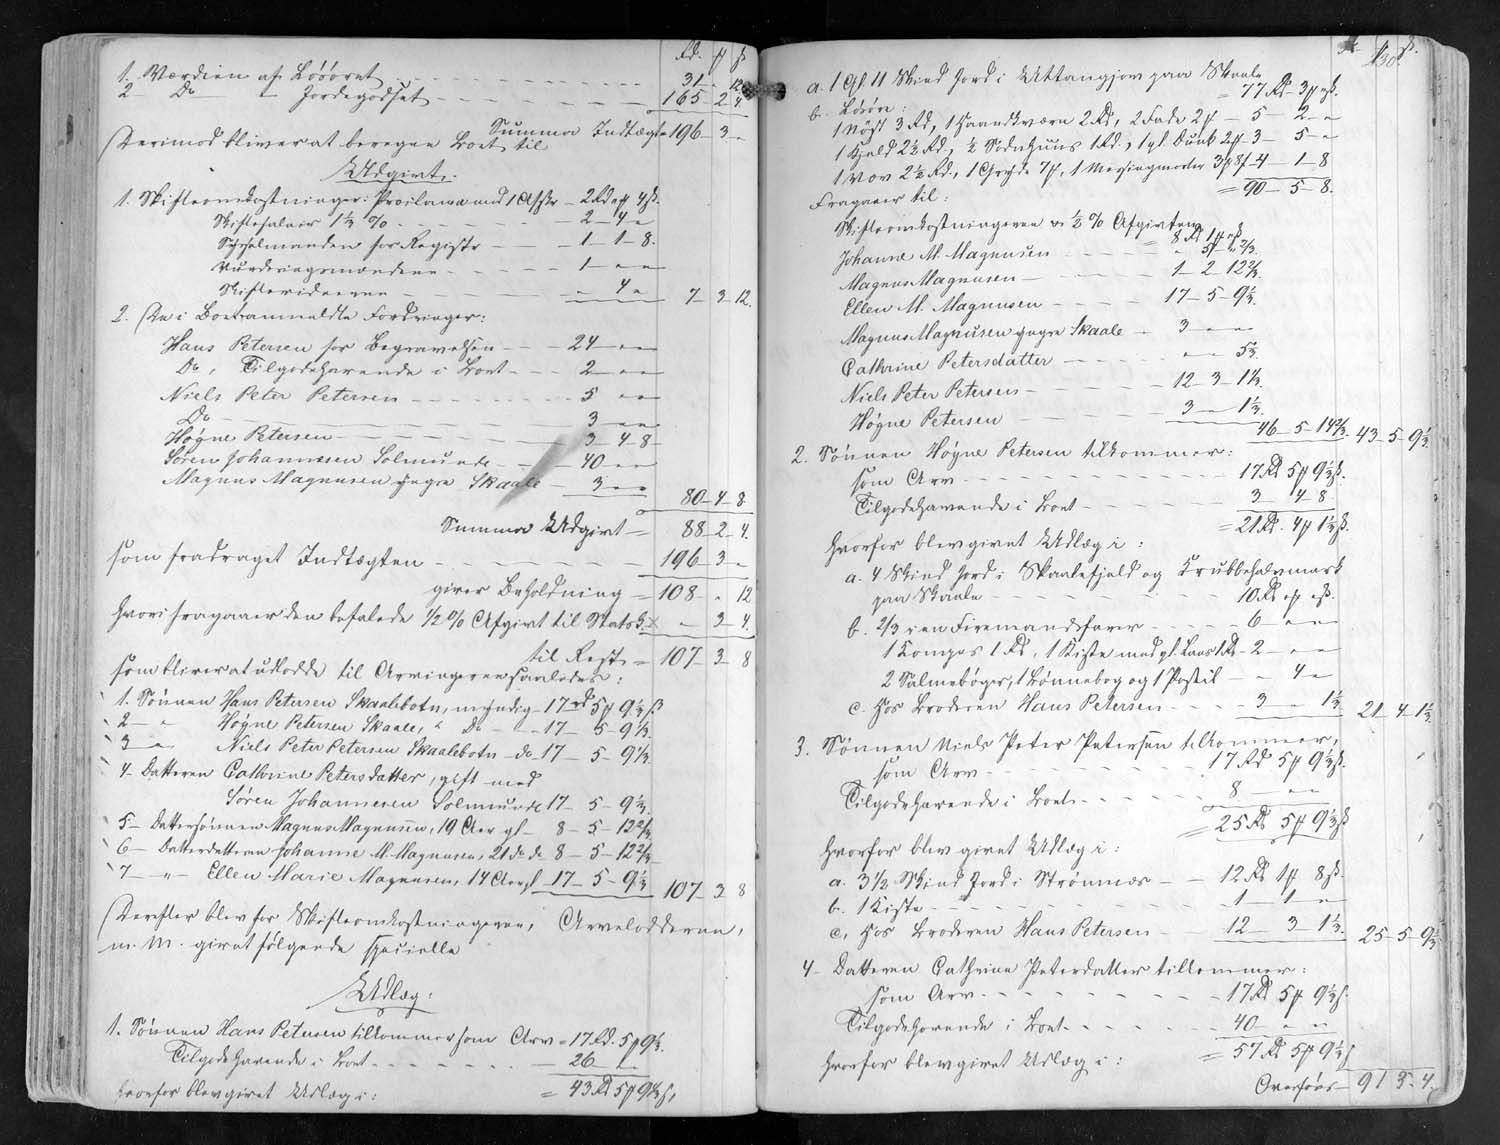 Rd. ₰ ß
1. Værdien af Løsøret - - - 31 - 12
2 Do - Jordegodset - - - 165 - 2 4.
Summa Indtægt = 196 3 -
Derimod bliver at beregne Boet til
Udgivt.
1. Skifteomkostninger: Proclama med 1 Afskr - 2 Rd 4 ß.
Skiftesalair 1 1/3 % - - - 2 - 4 -
Sysselmanden for Registr - - 1 - 1 - 8.
Vurderingsmændene - - - 1 - -
Skifteviderne - - - 4 - 7 - 3 12.
2. De i Boet anmeldte Fordringer:
Hans Petersen for Begravelsen - - 24 - -
Do, Tilgodehavende i Boet - - 2 - -
Niels Peter Petersen - - - 5 - -
Do - - - 3 - -
Høgne Petersen - - - 3 - 4 8 -
Søren Johannesen Solmunde - - 40 - -
Magnus Magnusen yngre Skaale - 3 - - 80 - 4 - 8.
Summa Udgivt = 88 - 2 - 4.
som fradraget Indtægten - - - 196 - 3 -
giver Beholdning = 108 - - 12
hvori fragaaer den befalede 1/2 % Afgivt til Statsk. - 3 - 4.
til Rest = 107 - 3 - 8
som bliver at udlodde til Arvingerne saaledes:
1. Sønnen Hans Petersen Skaalebotn, myndig - 17 rd 5 ₰ 9 1/3 ß
2 - " Høgne Petersen Skaale, " Do - - 17 - 5 - 9 1/3.
3 - " Niels Peter Petersen Skaalebotn - do 17 - 5 - 9 1/3
4 - Datteren Cathrine Petersdatter, gift med
Søren Johannesen Solmunde 17 - 5 - 9 1/3.
5 - Dattersønnen Magnus Magnusen, 19 Aar gl - 8 - 5 - 12 2/3.
6 - Datterdatteren Johanne M. Magnusen, 21 do do 8 - 5 - 12 2/3
7 - " - Ellen Marie Magnusen, 14 Aar gl 17 - 5 - 9 1/3 107 - 3 8
Derefter blev for Skifteomkostningerne, Arvelodderne,
m. M. givet følgende specielle
Udlæg:
1. Sønnen Hans Petersen tilkommer som Arv = 17 Rd. 5 ₰ 9 1/3.
Tilgodehavende i Boet - - - 26 - -
hvorfor blev givet Udlæg i: = 43 Rd 5 ₰ 9 1/3 ß,
130
a. 1 Gl. 11 Skind Jord i Uttangjov paa Skaale
= 77 Rd - 3 ₰ - ß.
b. Løsøre:
1 Nøst 3 Rd, 1 Haandkværn 2 Rd, 2 Fade 2 ₰ - 5 - 2 - -
1 Kjeld 2 1/2 Rd., 1/2 Sødnhuus 1 Rd., 1 gl. Dunk 2 ₰ 3 - 5 - -
1 Vov 2 1/2 Rd., 1 Gryde 7 ₰, 1 Messingmorter 3 ₰ 8 ß - 4 - 1 - 8
= 90 - 5 - 8.
Fragaaer til:
Skifteomkostningerne og 1/2 % Afgivten = 8 Rd 1 ₰ - ß
Johanne M. Magnusen - - - 5 ₰ - 2/3.
Magnus Magnusen - - - 1 - 2 12 2/3.
Ellen M. Magnusen - - - 17 - 5 - 9 1/3.
Magnus Magnusen yngre Skaale - 3 - -
Cathrine Petersdatter - - - - 5 1/3.
Niels Peter Petersen - - - 12 - 3 - 1 1/3.
Høgne Petersen - - - 3 - 1 1/3.
46 - 5 - 14 2/3. 43 - 5 - 9 1/3
2. Sønnen Høgne Petersen tilkommer:
som Arv - - - 17 Rd 5 ₰ 9 1/3 ß.
Tilgodehavende i Boet - - - 3 - 4 8 -
= 21 Rd. 4 ₰ 1 1/3 ß.
hvorfor blev givet Udlæg i:
a. 4 Skind Jord i Skaalefjeld og Krubbehalvmark
paa Skaale - - - 10 Rd - ₰ - ß.
b. 2/3 i en Firemandsfarer - - - 6 - -
1 Kompas 1 Rd, 1 Kiste med gl. Laas 1 Rd - 2 - -
2 Salmebøger, 1 Bønnebog og 1 Postil - - 4 -
c. Hos Broderen Hans Petersen - - - 3 - 1 1/3 21 - 4 - 1 1/3.
3. Sønnen Niels Peter Petersen tilkommer,
som Arv - - - 17 Rd 5 ₰ 9 1/3 ß.
Tilgodehavende i Boet - - - 8 - -
= 25 Rd 5 ₰ 9 1/3 ß
hvorfor blev givet Udlæg i:
a. 3 1/2 Skind Jord i Strømnæs - - 12 Rd 1 ₰ 8 ß.
b. 1 Kiste - - - 1 - 1 -
c. Hos Broderen Hans Petersen - - 12 - 3 - 1 1/3. 25 - 5 - 9 1/3
4 - Datteren Cathrine Petersdatter tilkommer:
som Arv - - - 17 Rd 5 ₰ 9 1/3 ß.
Tilgodehavende i Boet - - - 40 - -
= 57 Rd 5 ₰ 9 1/3 ß
hvorfor blev givet Udlæg i:
Overføres - 91 3 - 4.